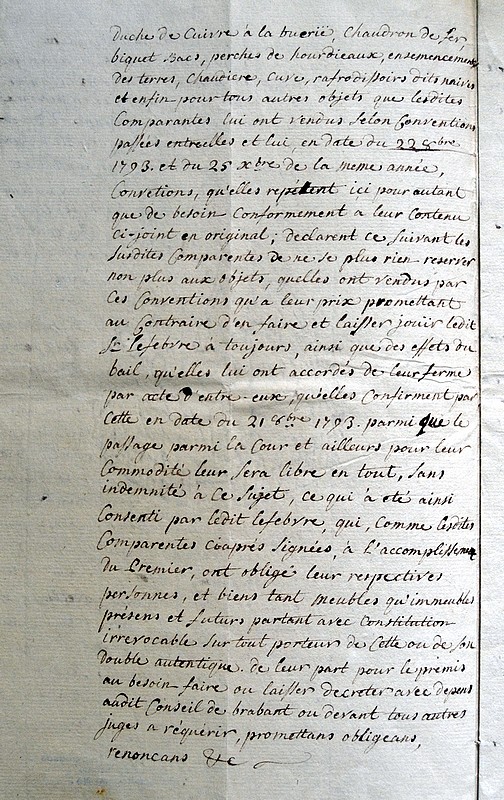 duche de Cuivre à la buerië, Chaudron de fer,
biquet Bacs, perches de hourdieaux, ensemencements
des terres, Chaudiere, Cuve, rafrodissoirs dits naives
et enfin pour tous autres objets que lesdites
Comparantes lui ont vendus Selon Conventions
passées entrelles et lui, en date du 22 8bre
1793. et du 25 Xbre de la meme année,
Convetions, qu'elles repétent ici pour autant
que de besoin Conformement a leur Contenu
Ci-joint en original; declarent ce suivant les
Susdites Comparentes de ne se plus rien reserver
non plus aux objets, quelles ont vendus par
Ces Conventions qu'a leur prix promettant
au Contraire d'en faire et laisser jouir ledit
Sr Lefebvre à toujours, ainsi que des effets du
bail, qu'elles lui ont accordés de leur ferme
par acte d'entre-eux, qu'elles Confirment par
Cette en date du 21 8bre 1793. parmi que le
passage parmi la Cour et ailleurs pour leur
Commodité leur Sera libre en tout, Sans
indemnité à Ce Sujet, ce qui à eté ainsi
Consenti par ledit lefebvre, qui, Comme lesdites
Comparentes Cíaprés Signées, à L'accomplissement
du Premier, ont obligé leur respectives
personnes, et biens tant meubles qu'immeubles
présens et futurs partant avec Constitution
irrevocable Sur tout porteur de Cette ou de Son
double autentique. de leur part pour le prémis
au besoin faire ou laisser decreter avec depens
audit Conseil de brabant ou devant tous autres
juges a réquérir, promettans obligeans,
renoncans &c